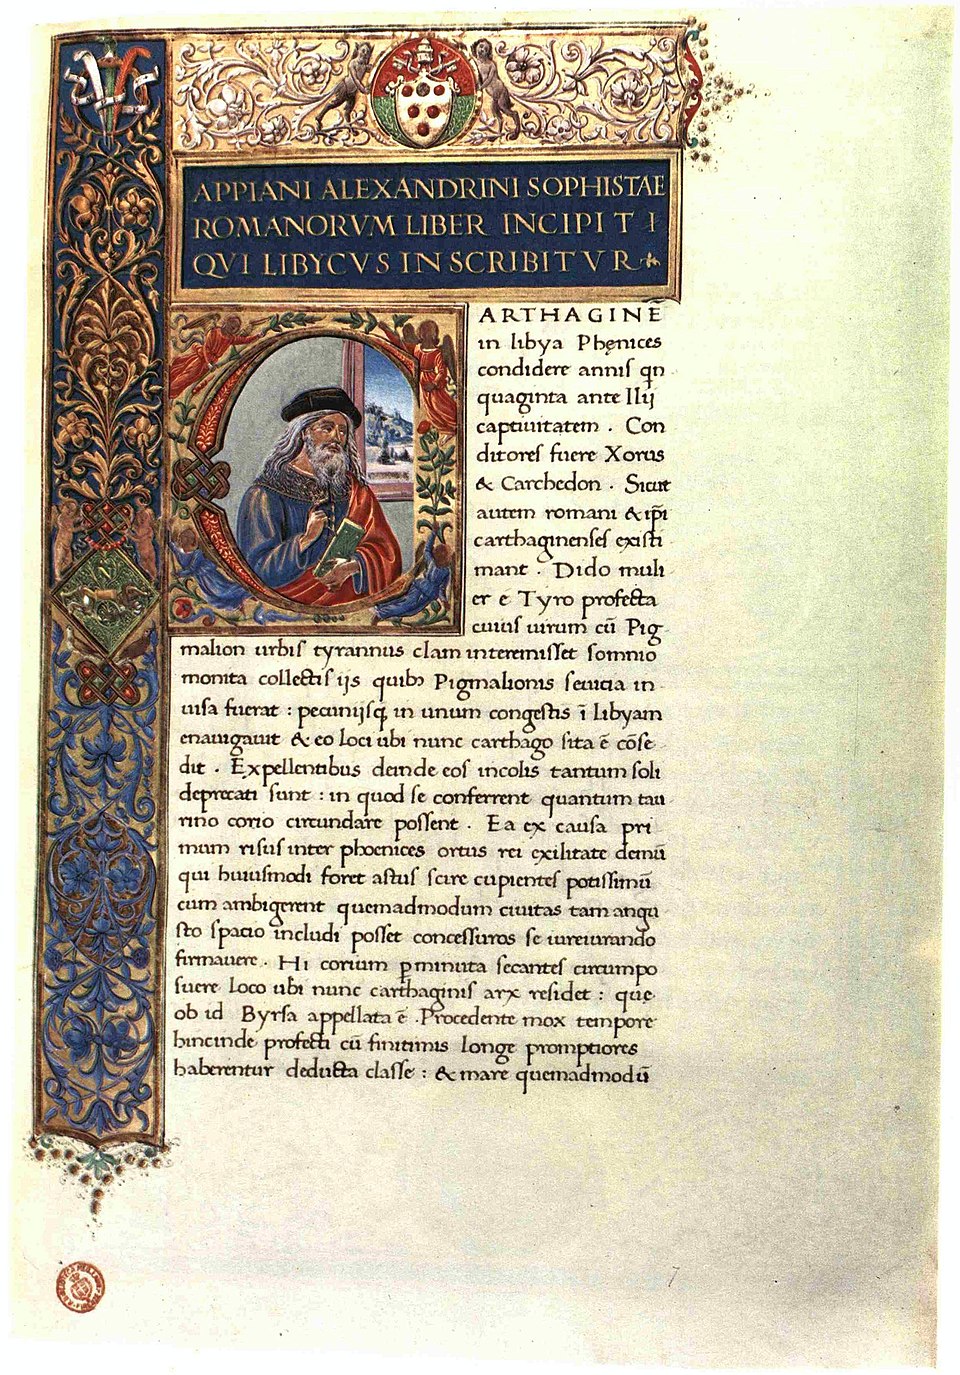 APPIANI ALEXANDRINI SOPHISTAE
ROMANORVM LIBER INCIPIT I
QVI LIBYCVS INSCRIBITVR
C
ARTHAGINĒ
in libya Phęnices
condidere annis qn
quaginta ante Ilij
captiuitatem . Con
ditores fuere Xorus
& Carchedon . Sicut
autem romani & ip̄i
carthaginenses existi
mant . Dido muli
er e Tyro profecta
cuius uirum cū Pig
malion urbis tyrannus clam interemisset somnio
monita collectis ijs quibꝫ Pigmalionis seuicia in
uisa fuerat : pecunijsq; in unum congestis ī libyam
enauigauit & eo loci ubi nunc carthago sita ē cōse
dit . Expellentibus deinde eos incolis tantum soli
deprecati sunt : in quod se conferrent quantum tau
rino corio circundare possent . Ea ex causa pri
mum risus inter phoenices ortus rei exilitate demū
qui huiusmodi foret astus scire cupientes potissimū
cum ambigerent quemadmodum ciuitas tam angu
sto spacio includi posset concessuros se iureiurando
firmauere . Hi corium ꝑminuta secantes circumpo
suere loco ubi nunc carthaginis arx residet : que
ob id Byrsa appellata ē . Procedente mox tempore
hincinde profecti cū finitimis longe promptiores
haberentur deducta classe : & mare quemadmodū
N